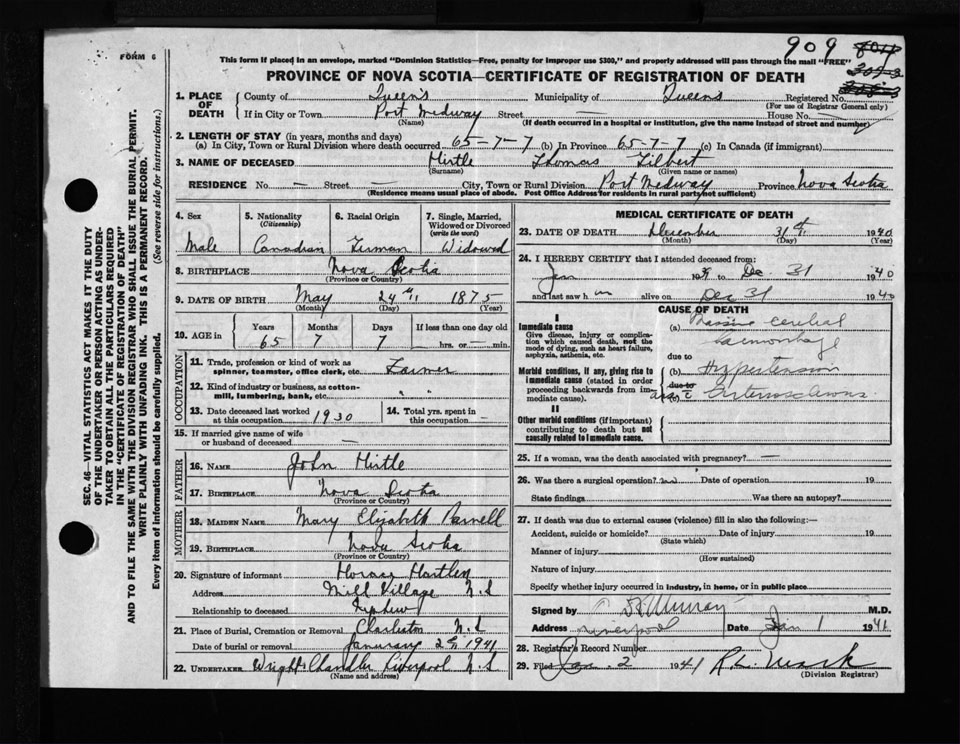 909
FORM 6
This form if placed in an envelope, marked "Dominion Statistics—Free, penalty for improper use $300," and properly addressed will pass through the mail "FREE"
PROVINCE OF NOVA SCOTIA—CERTIFICATE OF REGISTRATION OF DEATH
1. PLACE OF DEATH County of Queens Municipality of Queens Registered No.
(For use of Registrar General only)
If in City or Town Port Medway Street — House No. —
(Name) (If death occurred in a hospital or institution, give the name instead of street and number)
2. LENGTH OF STAY (in years, months and days)
(a) In City, Town or Rural Division where death occurred 65-7-7 (b) In Province 65-7-7 (c) In Canada (if immigrant)
3. NAME OF DECEASED Hirtle Thomas Filbert
(Surname) (Given name or names)
RESIDENCE No. — Street — City, Town or Rural Division Port Medway Province Nova Scotia
(Residence means usual place of abode. Post Office Address for residents in rural parts not sufficient)
4. Sex 5. Nationality (Citizenship) 6. Racial Origin 7. Single, Married, Widowed or Divorced (write the word)
Male Canadian German Widowed
8. BIRTHPLACE Nova Scotia
(Province or Country)
9. DATE OF BIRTH May 24th 1875
(Month) (Day) (Year)
10. AGE in Years Months Days If less than one day old
65 7 7 hrs. or — min.
OCCUPATION
11. Trade, profession or kind of work as spinner, teamster, office clerk, etc. Farmer
12. Kind of industry or business, as cotton-mill, lumbering, bank, etc. " "
13. Date deceased last worked at this occupation 1930 14. Total yrs. spent in this occupation —
15. If married give name of wife or husband of deceased —
FATHER
16. NAME John Hirtle
17. BIRTHPLACE Nova Scotia
(Province or Country)
MOTHER
18. MAIDEN NAME Mary Elizabeth Parnell
19. BIRTHPLACE Nova Scotia
(Province or Country)
20. Signature of informant Horace Hartlen
Address Mill Village N.S
Relationship to deceased Nephew
21. Place of Burial, Cremation or Removal Charleston N.S
Date of burial or removal January 2nd 1941
22. UNDERTAKER Wright Chandler Liverpool N.S
(Name and address)
MEDICAL CERTIFICATE OF DEATH
23. DATE OF DEATH December 31st 1940
(Month) (Day) (Year)
24. I HEREBY CERTIFY that I attended deceased from:
Jan 1939 to Dec. 31 1940
and last saw him alive on Dec 31 1940
CAUSE OF DEATH
I
Immediate cause
Give disease, injury or complication which caused death, not the mode of dying, such as heart failure, asphyxia, asthenia, etc.
(a) Massive cerebral haemorrhage
due to
Morbid conditions, if any, giving rise to immediate cause (stated in order proceeding backwards from immediate cause).
(b) Hypertension
due to
Arteriosclerosis
II
Other morbid conditions (if important) contributing to death but not causally related to immediate cause.
25. If a woman, was the death associated with pregnancy? —
26. Was there a surgical operation? no Date of operation 19
State findings Was there an autopsy?
27. If death was due to external causes (violence) fill in also the following:—
Accident, suicide or homicide? Date of injury 19
(State which)
Manner of injury
(How sustained)
Nature of injury
Specify whether injury occurred in industry, in home, or in public place
Signed by Murray M.D.
Address Liverpool Date Jan 1 1941
28. Registrar's Record Number
29. Filed Jan. 2 1941 R.L. Mack
(Division Registrar)
SEC. 46—VITAL STATISTICS ACT MAKES IT THE DUTY
OF THE UNDERTAKER OR PERSON ACTING AS UNDER-
TAKER TO OBTAIN ALL THE PARTICULARS REQUIRED
IN THE "CERTIFICATE OF REGISTRATION OF DEATH"
AND TO FILE THE SAME WITH THE DIVISION REGISTRAR WHO SHALL ISSUE THE BURIAL PERMIT.
WRITE PLAINLY WITH UNFADING INK. THIS IS A PERMANENT RECORD.
Every item of information should be carefully supplied. (See reverse side for instructions.)